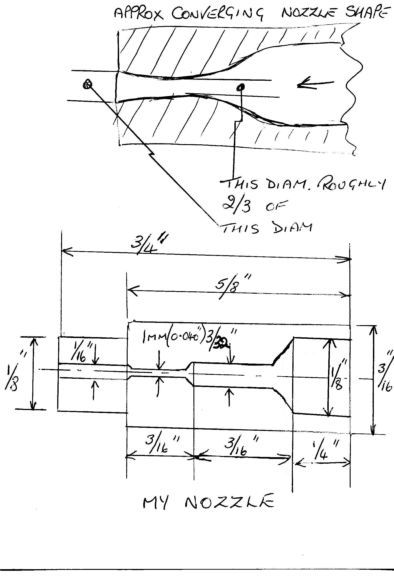 APPROX CONVERGING NOZZLE SHAPE
THIS DIAM. ROUGHLY
2/3 OF
THIS DIAM
3/4"
5/8"
1/16"
1MM(0.040") 3/32"
1/8"
1/8"
3/16"
3/16"
3/16"
1/4"
MY NOZZLE